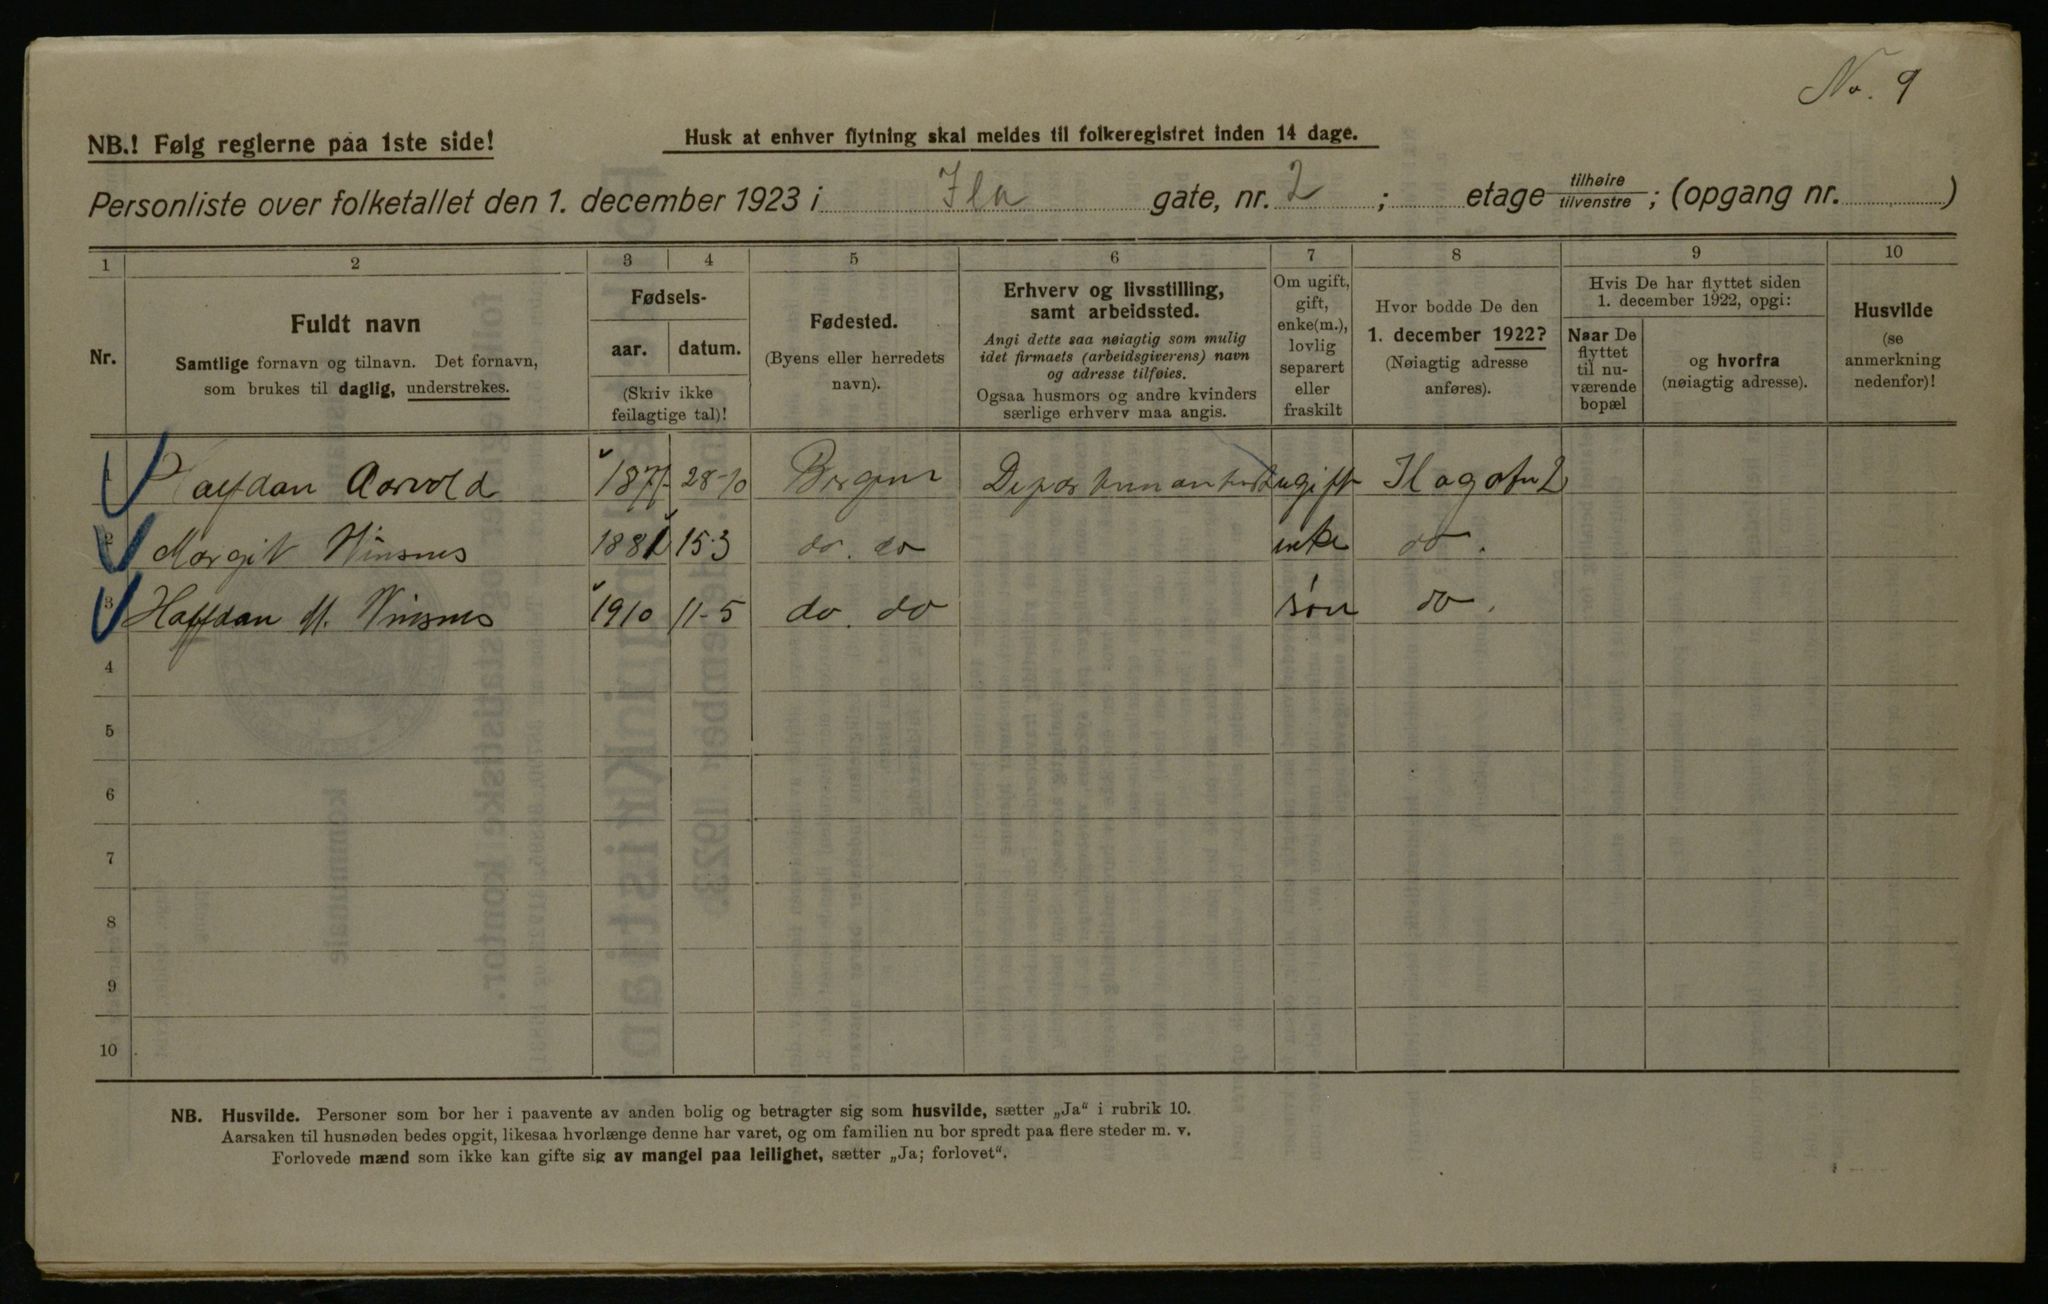 No. 9
NB.! Følg reglerne paa 1ste side!
Husk at enhver flytning skal meldes til folkeregistret inden 14 dage.
Personliste over folketallet den 1. december 1923 i Ila gate, nr. 2 ; etage tilhøire tilvenstre ; (opgang nr. )
1 2 3 4 5 6 7 8 9 10
Nr.
Fuldt navn
Samtlige fornavn og tilnavn. Det fornavn,
som brukes til daglig, understrekes.
Fødsels-
aar. datum.
(Skriv ikke
feilagtige tal)!
Fødested.
(Byens eller herredets
navn).
Erhverv og livsstilling,
samt arbeidssted.
Angi dette saa nøiagtig som mulig
idet firmaets (arbeidsgiverens) navn
og adresse tilføies.
Ogsaa husmors og andre kvinders
særlige erhverv maa angis.
Om ugift,
gift,
enke(m.),
lovlig
separert
eller
fraskilt
Hvor bodde De den
1. december 1922?
(Nøiagtig adresse
anføres).
Hvis De har flyttet siden
1. december 1922, opgi:
Naar De
flyttet
til nu-
værende
bopæl
og hvorfra
(nøiagtig adresse).
Husvilde
(se
anmerkning
nedenfor)!
1 Halfdan Aarvold 1877 28-10 Bergen ugift Ilagaten 2
2 Margit Winsnes 1881 15-3 do. do enke do.
3 Halfdan M. Winsnes 1910 11-5 do. do søn do.
4
5
6
7
8
9
10
NB. Husvilde. Personer som bor her i paavente av anden bolig og betragter sig som husvilde, sætter „Ja“ i rubrik 10.
Aarsaken til husnøden bedes opgit, likesaa hvorlænge denne har varet, og om familien nu bor spredt paa flere steder m. v.
Forlovede mænd som ikke kan gifte sig av mangel paa leilighet, sætter „Ja; forlovet“.